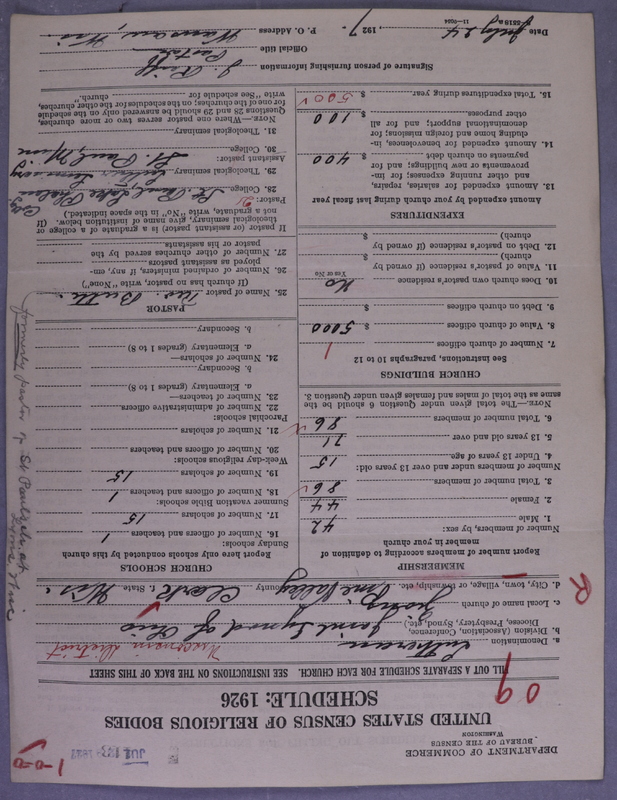 DEPARTMENT OF COMMERCE
BUREAU OF THE CENSUS
WASHINGTON
1-0-0
UNITED STATES CENSUS OF RELIGIOUS BODIES
SCHEDULE: 1926
09
FILL OUT A SEPARATE SCHEDULE FOR EACH CHURCH. SEE INSTRUCTIONS ON THE BACK OF THIS SHEET
a. Denomination Lutheran Wisconsin District
b. Division (Association, Conference, Diocese, Presbytery, Synod, etc.) Joint Synod of Ohio
c. Local name of church
d. City, town, village, or township, etc. Pine Valley County Clark, State, Wis.
R
MEMBERSHIP
Report number of members according to definition of
member in your church
Number of members, by sex:
1. Male 42
2. Female 44
3. Total number of members 86
Number of members under and over 13 years old:
4. Under 13 years of age 15
5. 13 years old and over 71
6. Total number of members 86
NOTE.—The total given under Question 6 should be the
same as the total of males and females given under Question 3.
CHURCH BUILDINGS
See instructions, paragraphs 10 to 12
7. Number of church edifices 1
8. Value of church edifices $ 5000
9. Debt on church edifices $
10. Does church own pastor's residence No
Yes or No
11. Value of pastor's residence (if owned by
church) $
12. Debt on pastor's residence (if owned by
church) $
EXPENDITURES
Amount expended by your church during last fiscal year
13. Amount expended for salaries, repairs,
and other running expenses; for im-
provements or new buildings; and for
payments on church debt $ 400
14. Amount expended for benevolences, in-
cluding home and foreign missions; for
denominational support; and for all
other purposes 100
15. Total expenditures during year $ 500
CHURCH SCHOOLS
Report here only schools conducted by this church
Sunday schools:
16. Number of officers and teachers 1
17. Number of scholars 15
Summer vacation bible schools:
18. Number of officers and teachers 1
19. Number of scholars 15
Week-day religious schools:
20. Number of officers and teachers
21. Number of scholars
Parochial schools:
22. Number of administrative officers
23. Number of teachers—
a. Elementary (grades 1 to 8)
b. Secondary
24. Number of scholars—
a. Elementary (grades 1 to 8)
b. Secondary
PASTOR
25. Name of pastor Theo. Buth
(If church has no pastor, write "None")
26. Number of ordained ministers, if any, em-
ployed as assistant pastors
27. Number of other churches served by the
pastor or his assistants
If pastor (or assistant pastor) is a graduate of a college or
theological seminary, give name of institution below. (If
not a graduate, write "No" in the space indicated.)
Pastor:
28. College St. Paul, Luther Phalen
29. Theological seminary Luther Seminary
Assistant pastor: St. Paul, Minn
30. College
31. Theological seminary
NOTE.—Where one pastor served two or more churches,
Questions 28 and 29 should be answered only on the schedule
for one of the churches; on the schedules for the other churches,
write "See schedule for church."
formerly pastor of St Pauls ch. at
Signature of person furnishing information
Official title Pastor
P. O. Address Wausau, Wis
Date July 24 1927.
11—9204